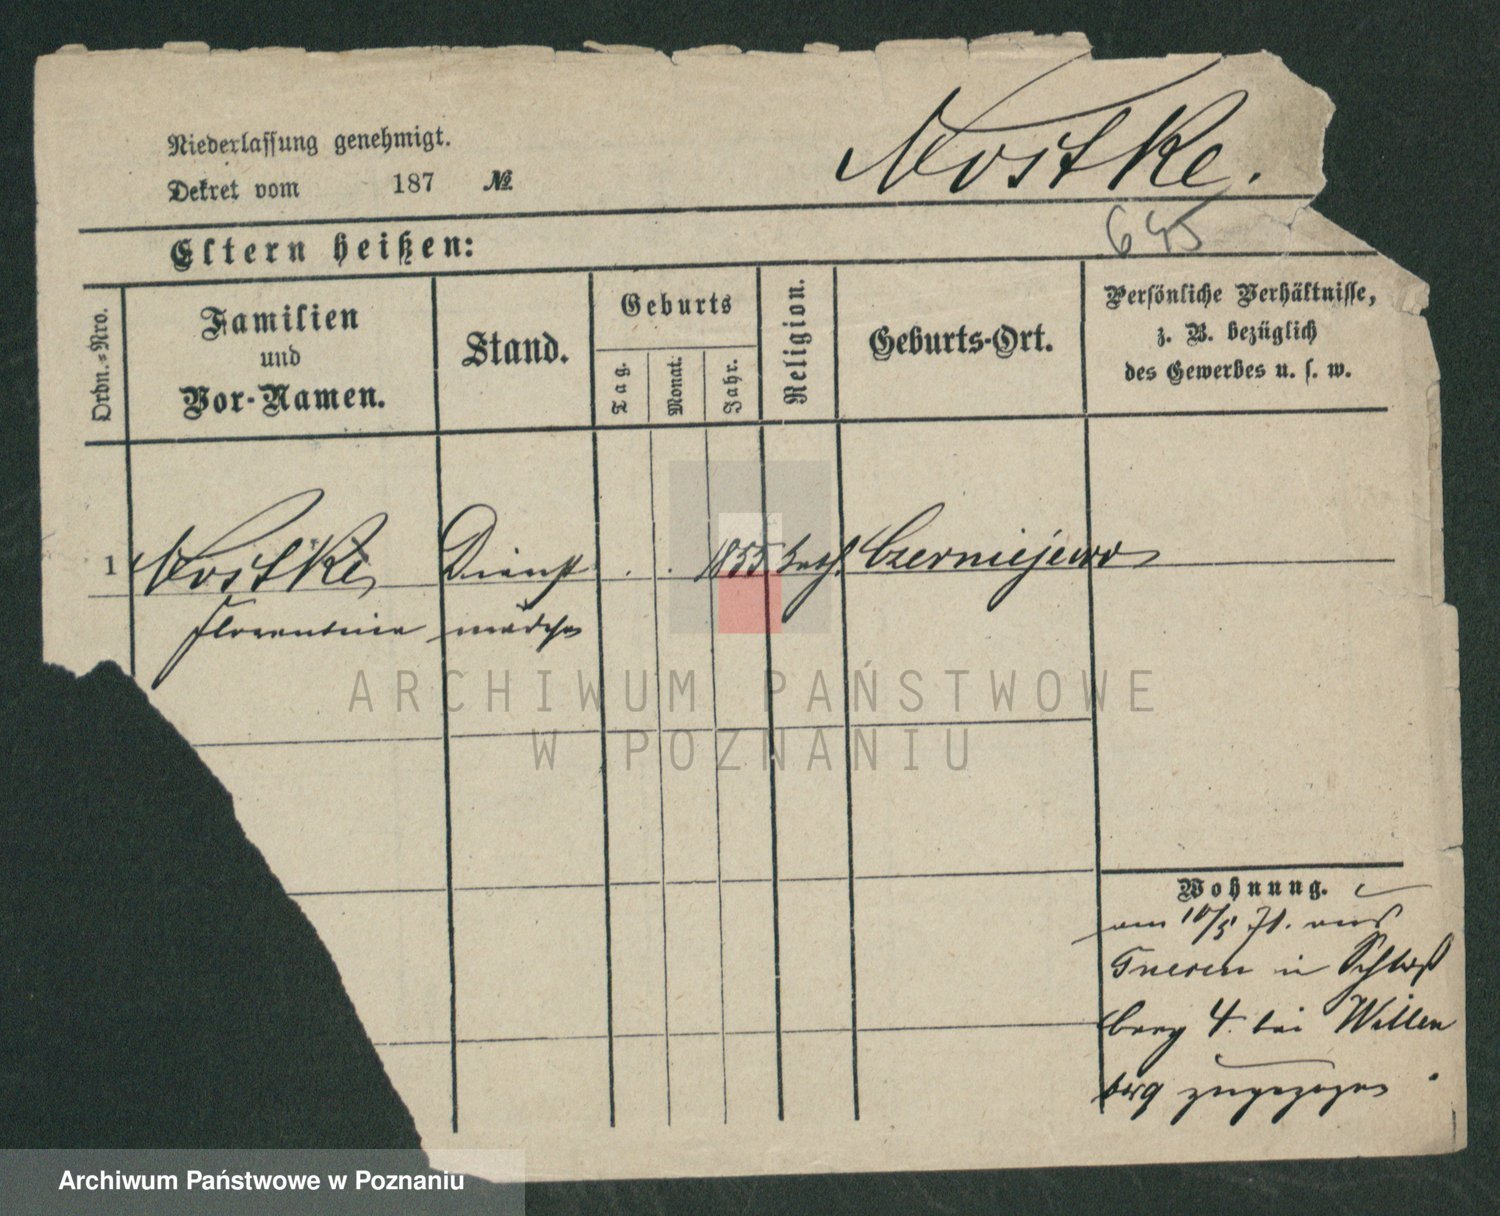 Niederlassung genehmigt.
Dekret vom 187 №
Nostke.
645
Eltern heißen:
Ordn.=Nro.
Familien
und
Vor-Namen.
Stand.
Geburts
Tag.
Monat.
Jahr.
Religion.
Geburts-Ort.
Persönliche Verhältnisse,
z. B. bezüglich
des Gewerbes u. s. w.
1 Nostke, Dienst . . 1855 kath. Czerniejewo
Florentine mädchen
ARCHIWUM PAŃSTWOWE
W POZNANIU
Wohnung.
am 10/5 71. aus
Gnesen in Schloß
berg 4. bei Willen
berg zugezogen.
Archiwum Państwowe w Poznaniu